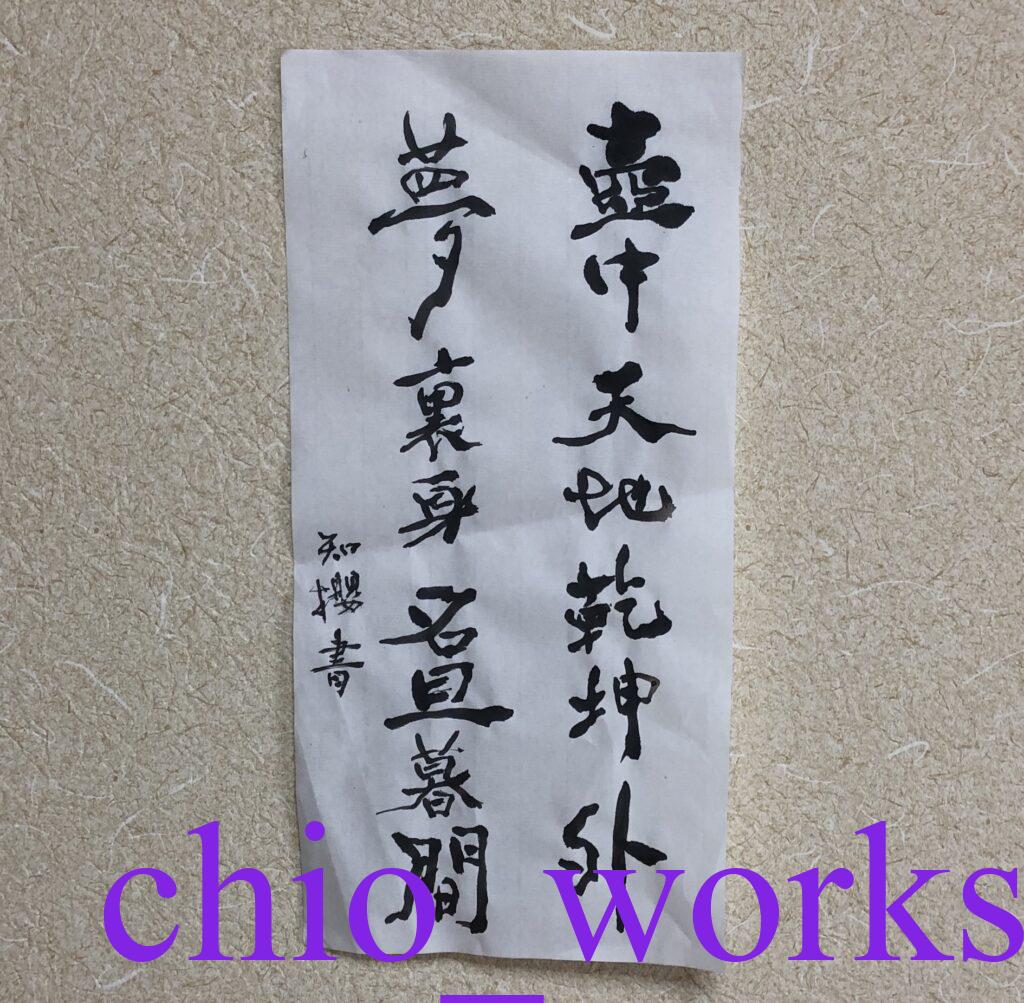 壺中天地乾坤外
夢裏身名旦暮間
知攖書
chio_works